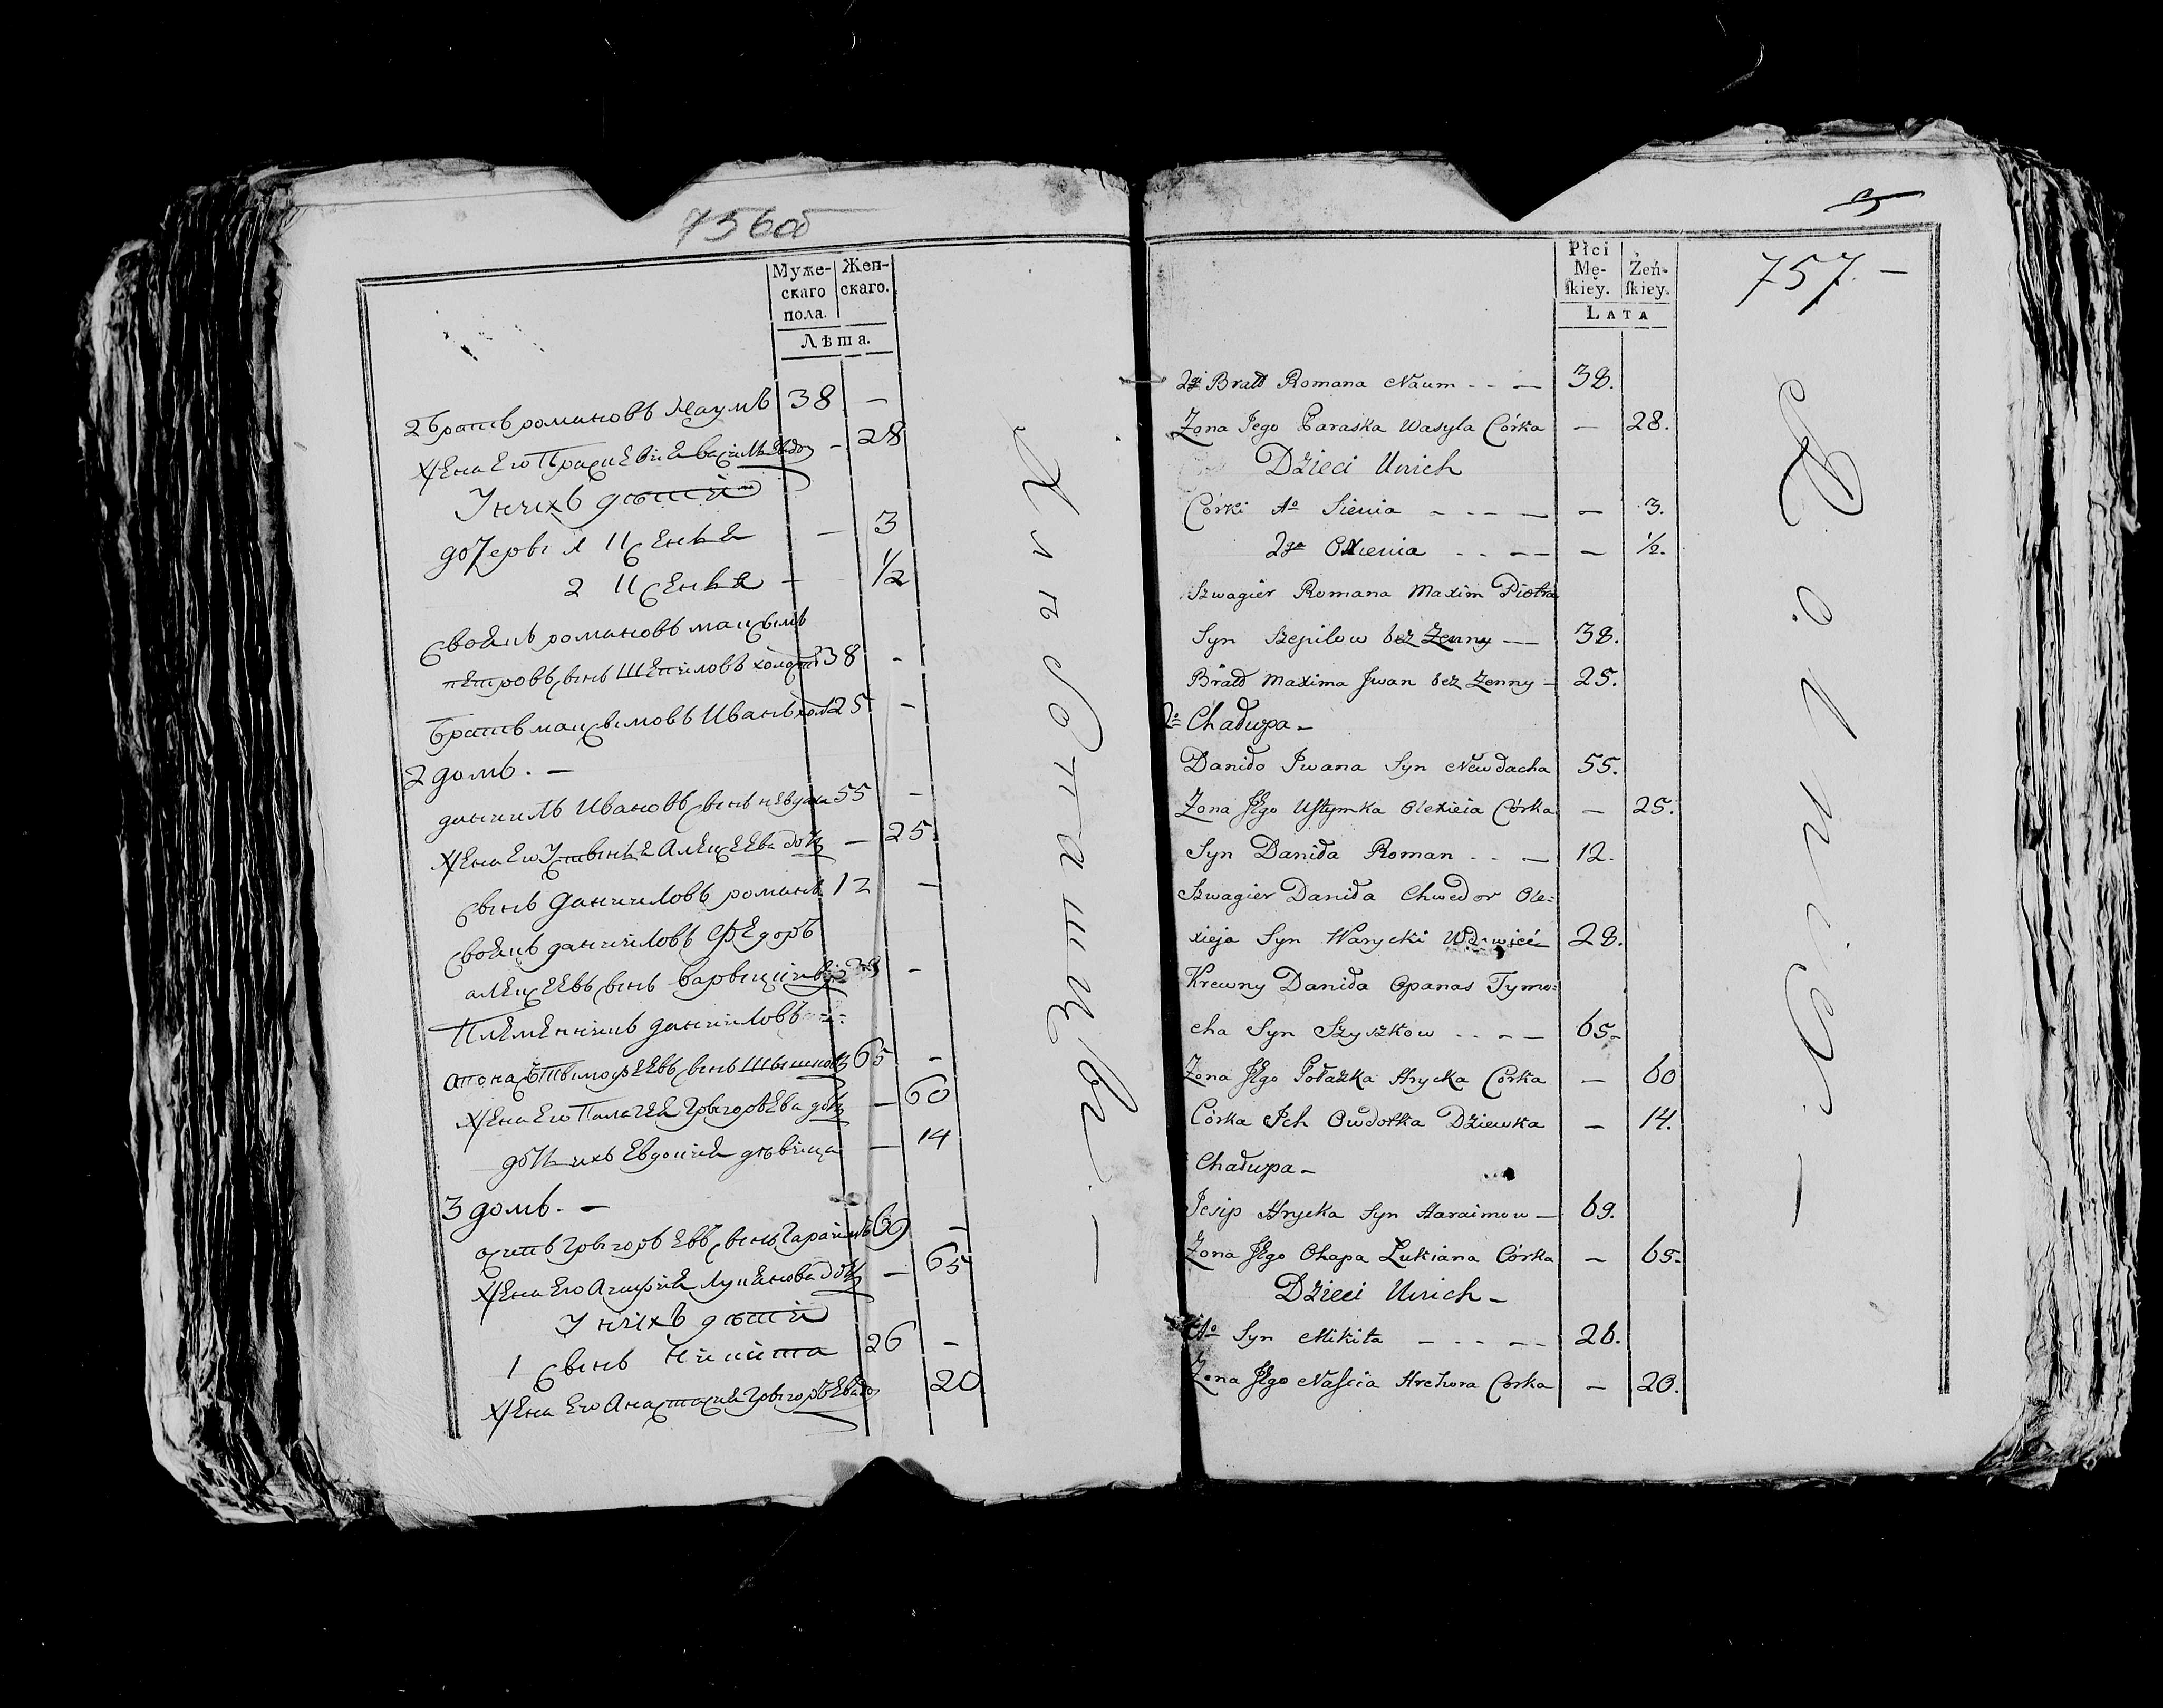 756об
Муже- Жен-
скаго скаго.
пола.
Лѣта.
2 братъ романовъ Наумъ 38 —
Жена Его Праскевия васильева до — 28
У нихъ дети
дочеры 1 Ксенья — 3
2 Ксенья — 1/2
своякъ романовъ максымъ
петровъ сынъ Шепиловъ холостъ 38 -
братъ максымовъ Иванъ хол 25 -
2 домъ. —
даниилъ Ивановъ сынъ невдаха 55 -
Жена Его Устинья Алексеева дочь — 25
сынъ данииловъ романъ 12 —
своякъ данииловъ Федоръ
алексеевъ сынъ 28 -
Племенникъ данииловъ
апонасъ тымофеевъ сынъ Шышковъ 65 -
Жена Его Палагея Грыгорьева дочь — 60
дочь ихъ Евдокия девица — 14
3 домъ. —
осипъ Грыгорьевъ сынъ Гараимовъ 69 —
Жена Его Агафия Лукянова дочь — 65
У нихъ дети
1 сынъ Никита 26 -
Жена Его Анастасия Грыгорьева до 20
3
757. —
Płci
Mę- Żeń-
skiey. skiey.
LATA
2gi Bratt Romana Naum - - — 38.
Zona Jego Paraska Wasyla Córka — 28.
Dzieci Unich
Córki 1o Sienia - - - — — 3.
2ga Oxienia - - - — — 1/2.
Szwagier Romana Maxim Piotra
Syn Szepilow bez Zenny — 38.
Bratt Maxima Jwan bez Zenny — 25.
2o Chałupa —
Daniło Jwana Syn Newdacha 55.
Zona Jego Ustymka Olexieia Córka — 25.
Syn Daniła Roman - - — 12.
Szwagier Daniła Chwedor Ole=
xieja Syn Warycki 28.
Krewny Daniła Opanas Tymo=
cha Syn Szyszkow - - - — 65-
Zona Jego Połazka Hrycka Corka — 60
Córka Ich Owdotka Dziewka — 14.
Chałupa —
Jesip Hrycka Syn Haraimow — 69.
Zona Jego Ohapa Lukiana Córka — 65-
Dzieci Unich —
1o Syn Mikita — - - — 26.
Zona Jego Nascia Hrehora Corka — 20.